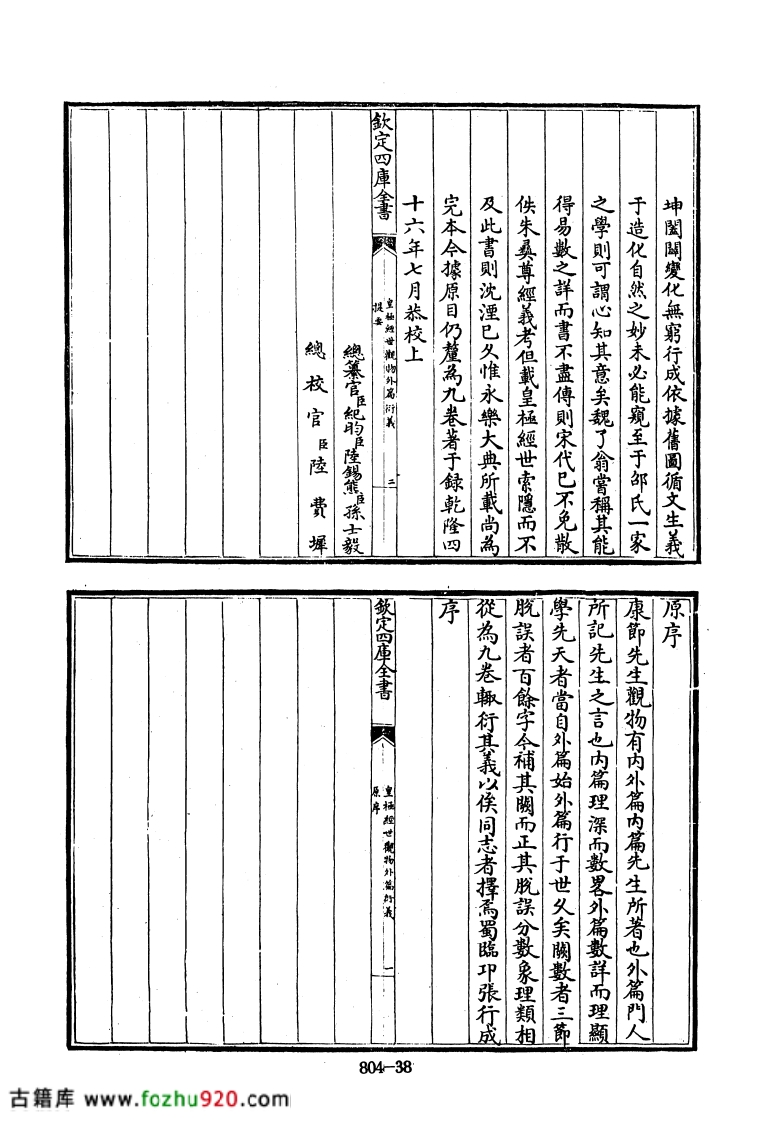 坤闔闢變化無窮行成依據舊圖循文生義
于造化自然之妙未必能窺至于邵氏一家
之學則可謂心知其意矣魏了翁嘗稱其能
得易數之詳而書不盡傳則宋代已不免散
佚朱彝尊經義考但載皇極經世索隱而不
及此書則沈湮已久惟永樂大典所載尚為
完本今據原目仍釐為九卷著于録乾隆四
十六年七月恭校上
欽定四庫全書
皇極經世觀物外篇衍義
提要
二
總纂官臣紀昀臣陸錫熊臣孫士毅
總校官臣陸費墀
原序
康節先生觀物有内外篇内篇先生所著也外篇門人
所記先生之言也内篇理深而數畧外篇數詳而理顯
學先天者當自外篇始外篇行于世久矣闕數者三節
脱誤者百餘字今補其闕而正其脱誤分數象理類相
從為九卷輙衍其義以俟同志者擇焉蜀臨卭張行成
序
欽定四庫全書
皇極經世觀物外篇衍義
原序
一
804-38
古籍库 www.fozhu920.com